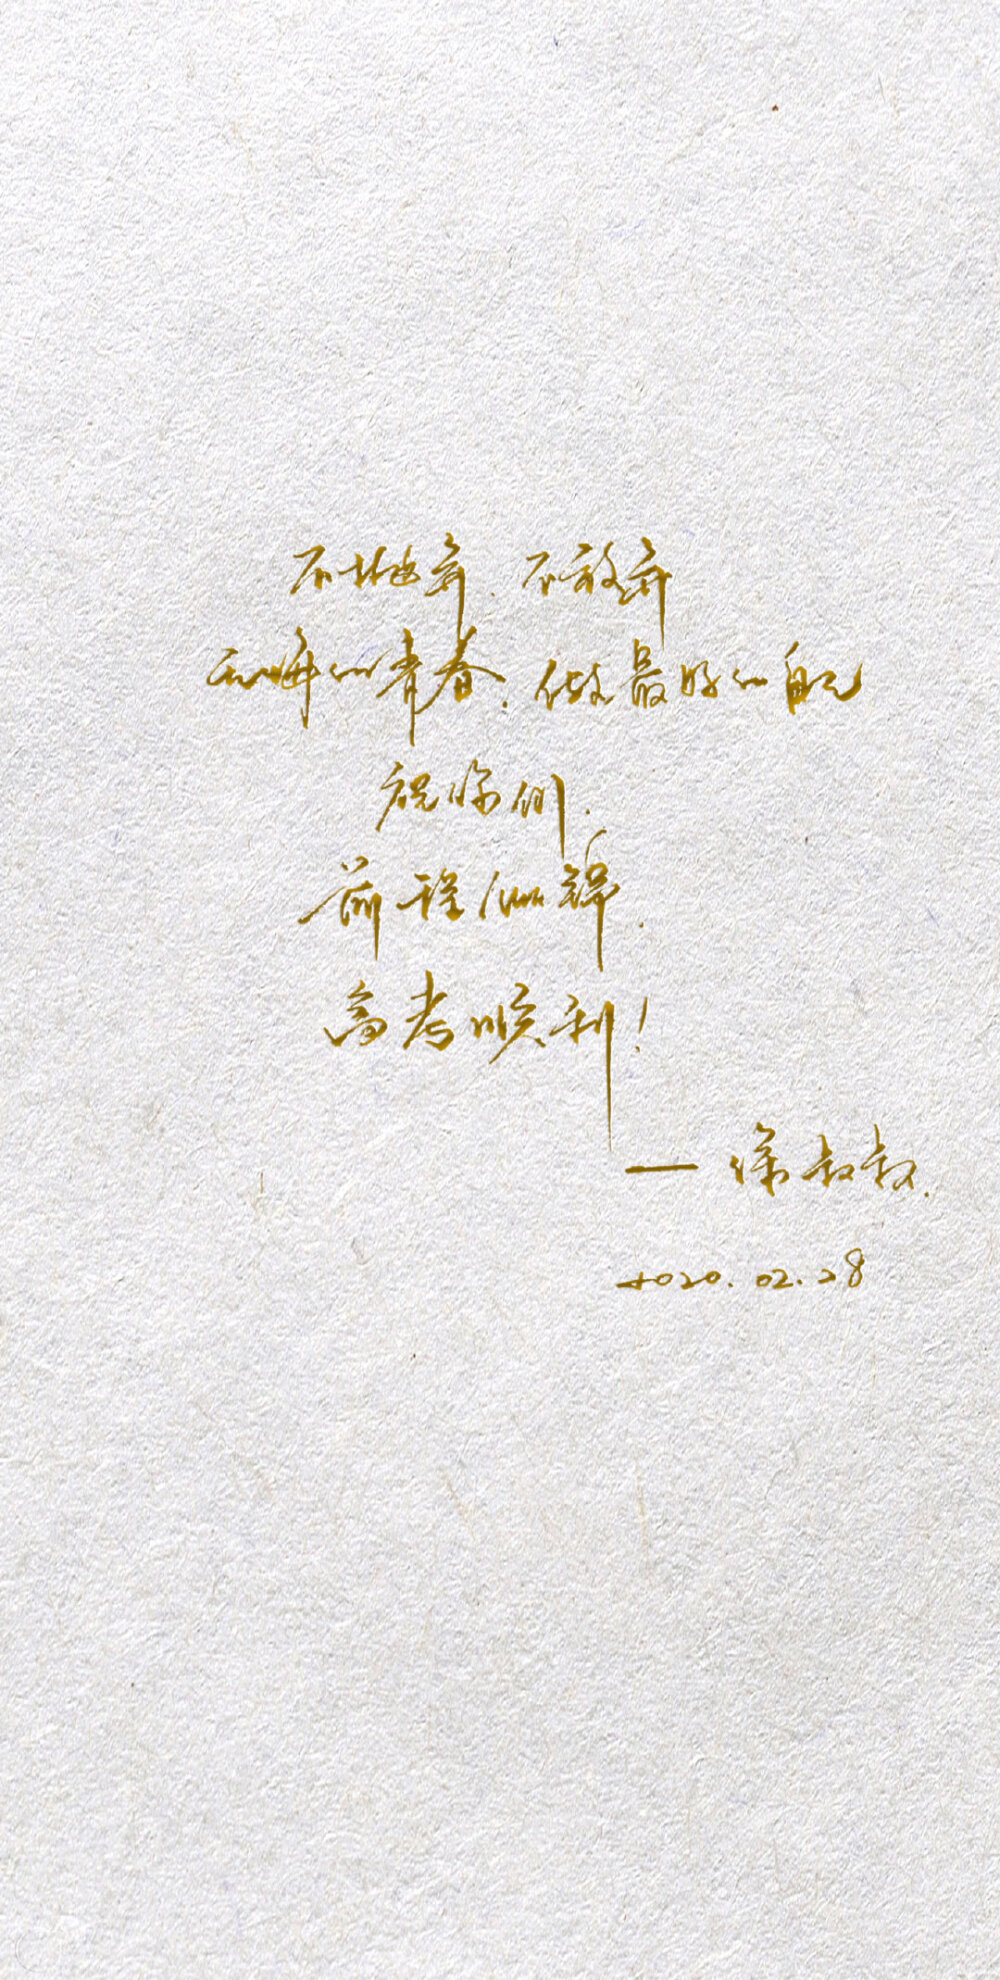 不抛弃、不放弃
无悔的青春.做最好的自己
祝你们.
前程似锦.
高考顺利!
—徐叔叔.
2020.02.28